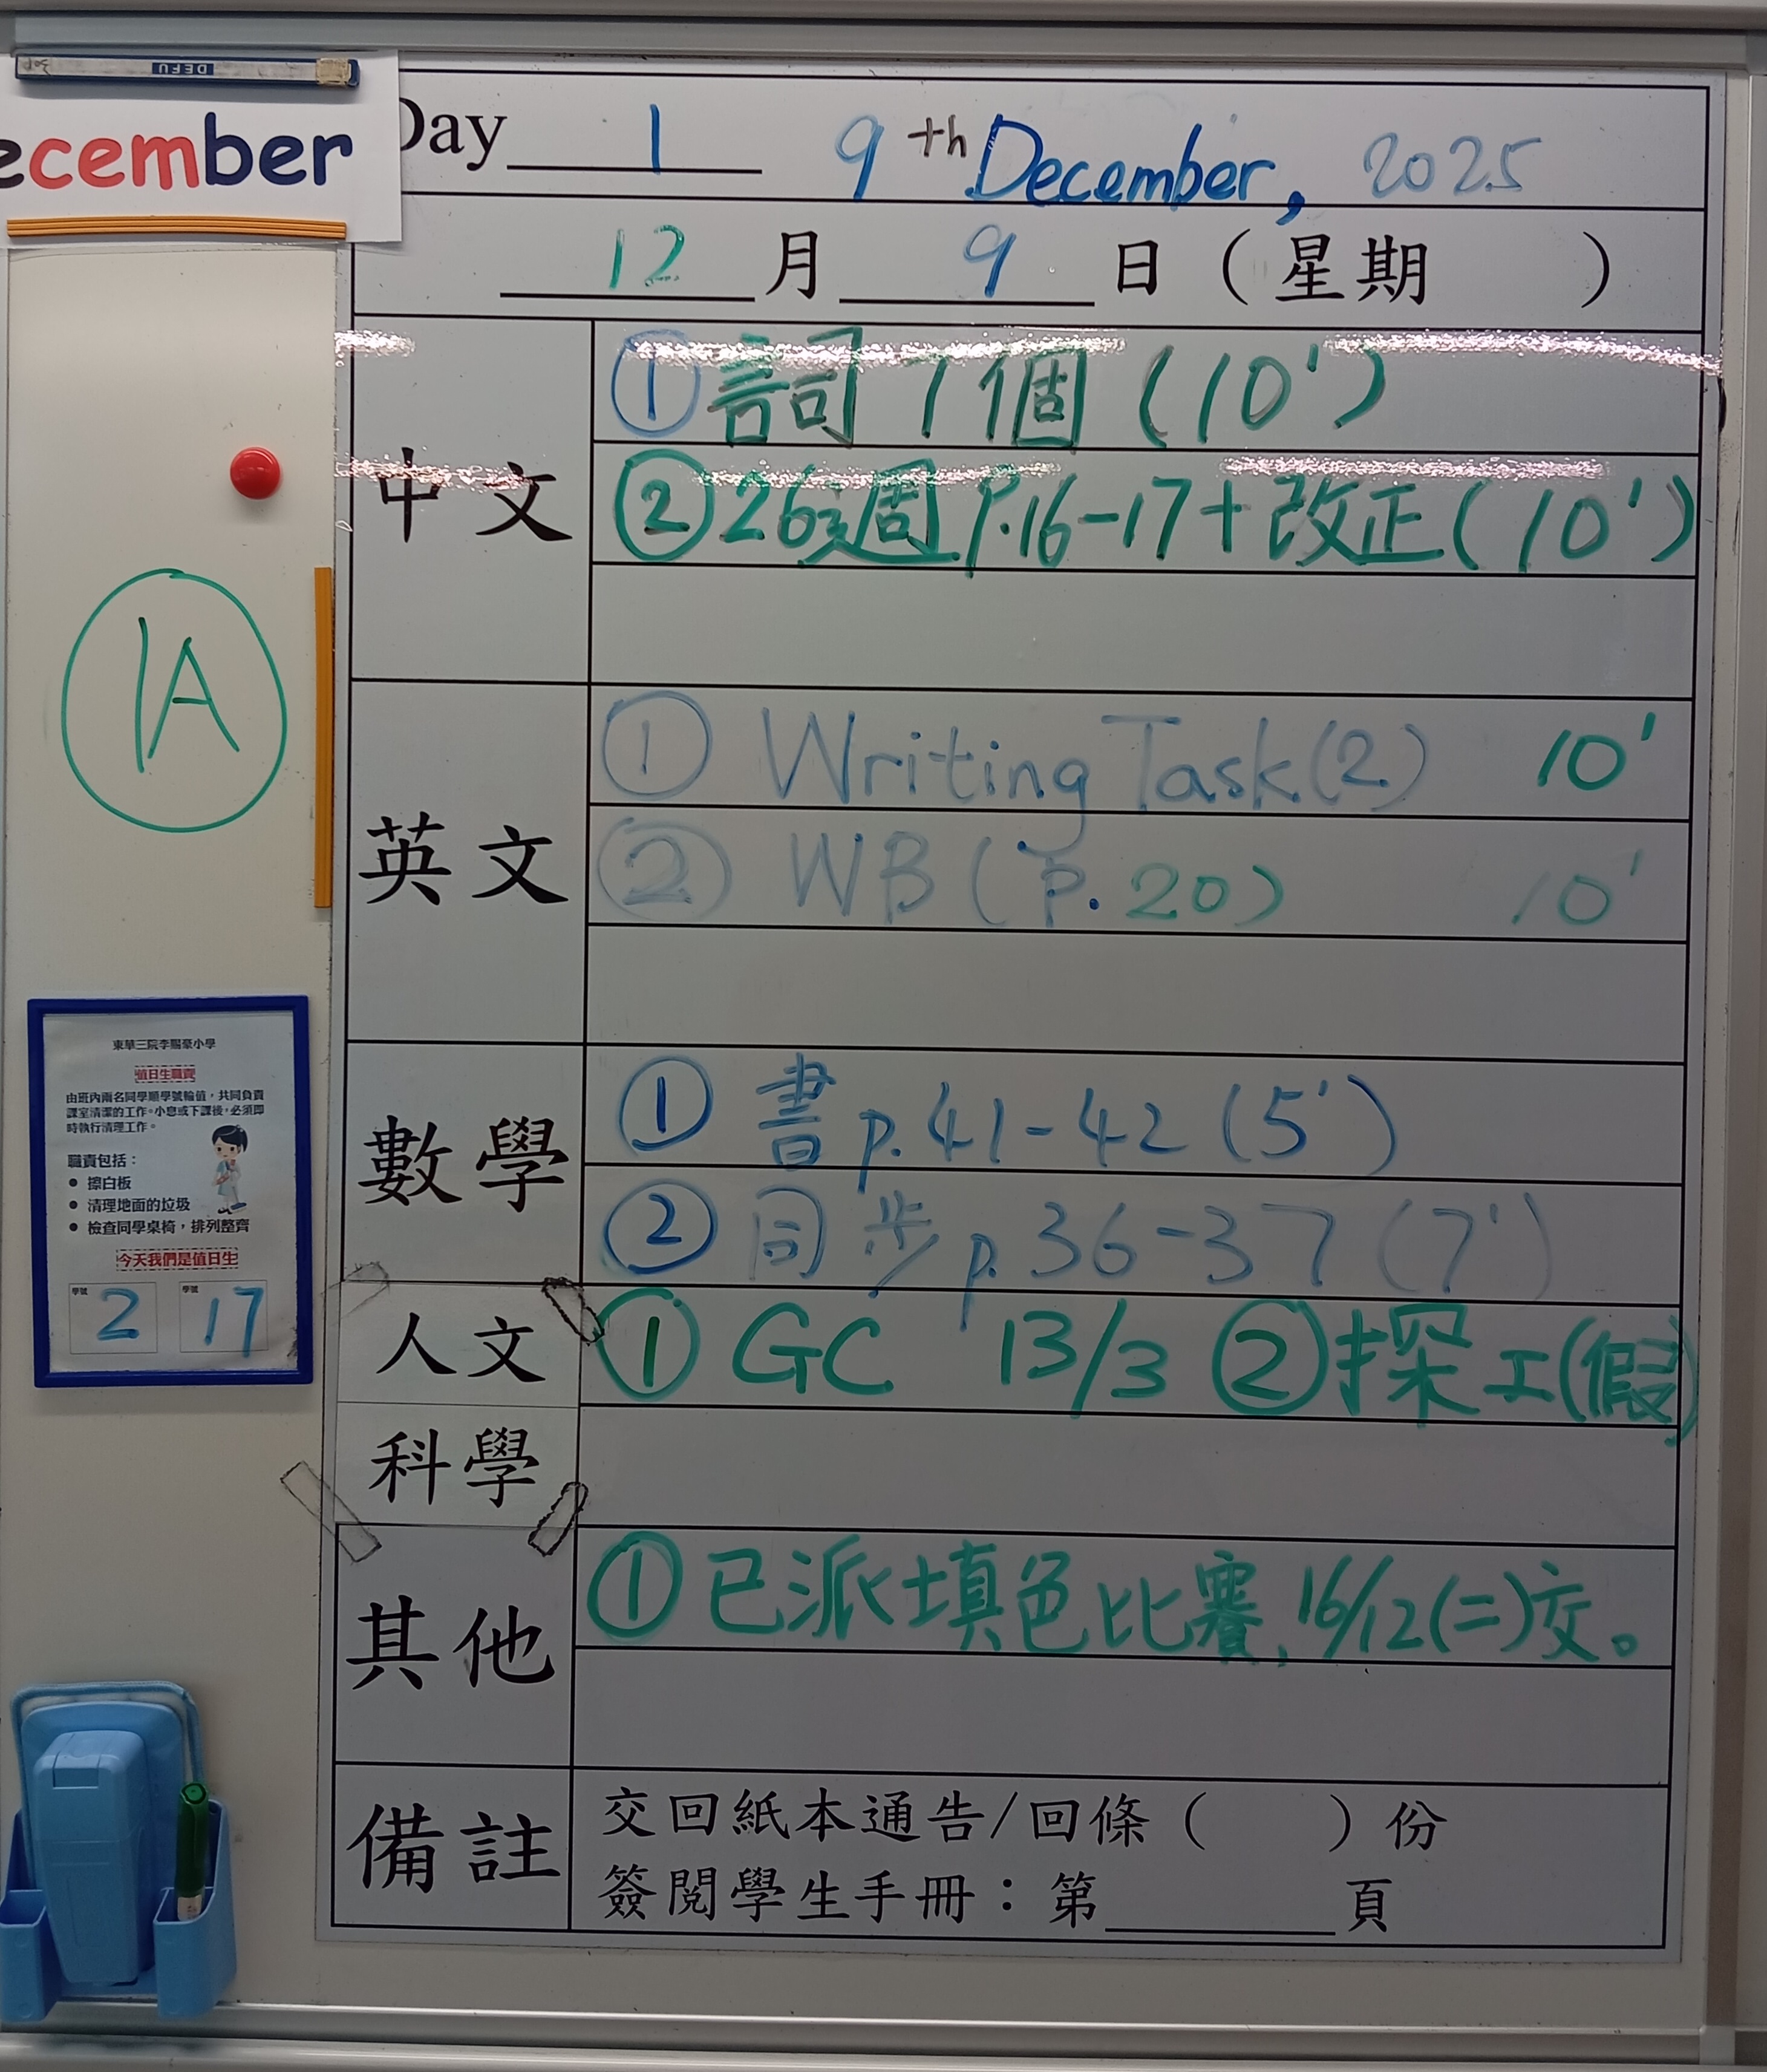 DEFU
ecember
Day 1 9th December, 2025
12月9日（星期 ）
中文
①詞1個(10')
②26週P.16-17+改正(10')
英文
① Writing Task(2) 10'
② WB(p.20) 10'
數學
① 書p.41-42(5')
② 同步p.36-37(7')
人文
① GC 13/3 ②探工(假)
科學
其他
①已派填色比賽,16/12(二)交。
備註
交回紙本通告/回條（ ）份
簽閱學生手冊：第 頁
1A
東華三院李賜豪小學
值日生職責
由班內兩名同學順學號輪值，共同負責
課室清潔的工作。小息或下課後，必須即
時執行清理工作。
職責包括：
● 擦白板
● 清理地面的垃圾
● 檢查同學桌椅，排列整齊
今天我們是值日生
學號 2 學號 17